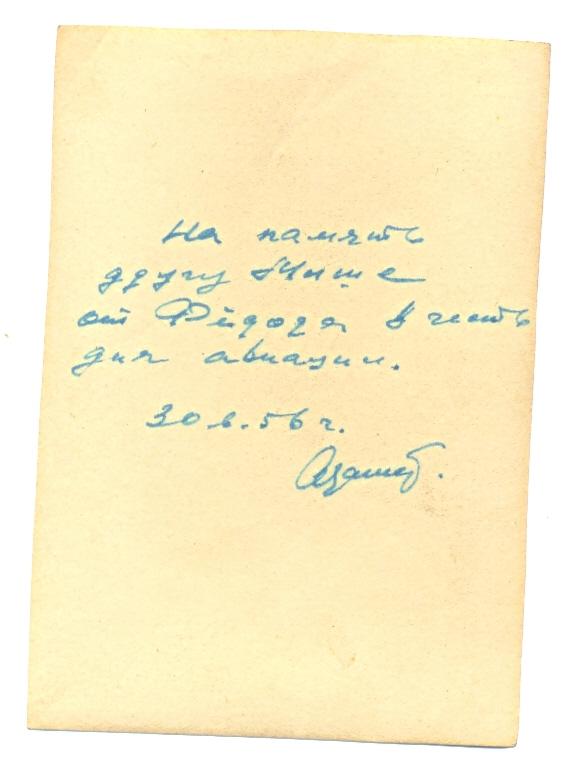 На память
другу Мише
от Фёдора в честь
дня авиации.
30.6.56 г.